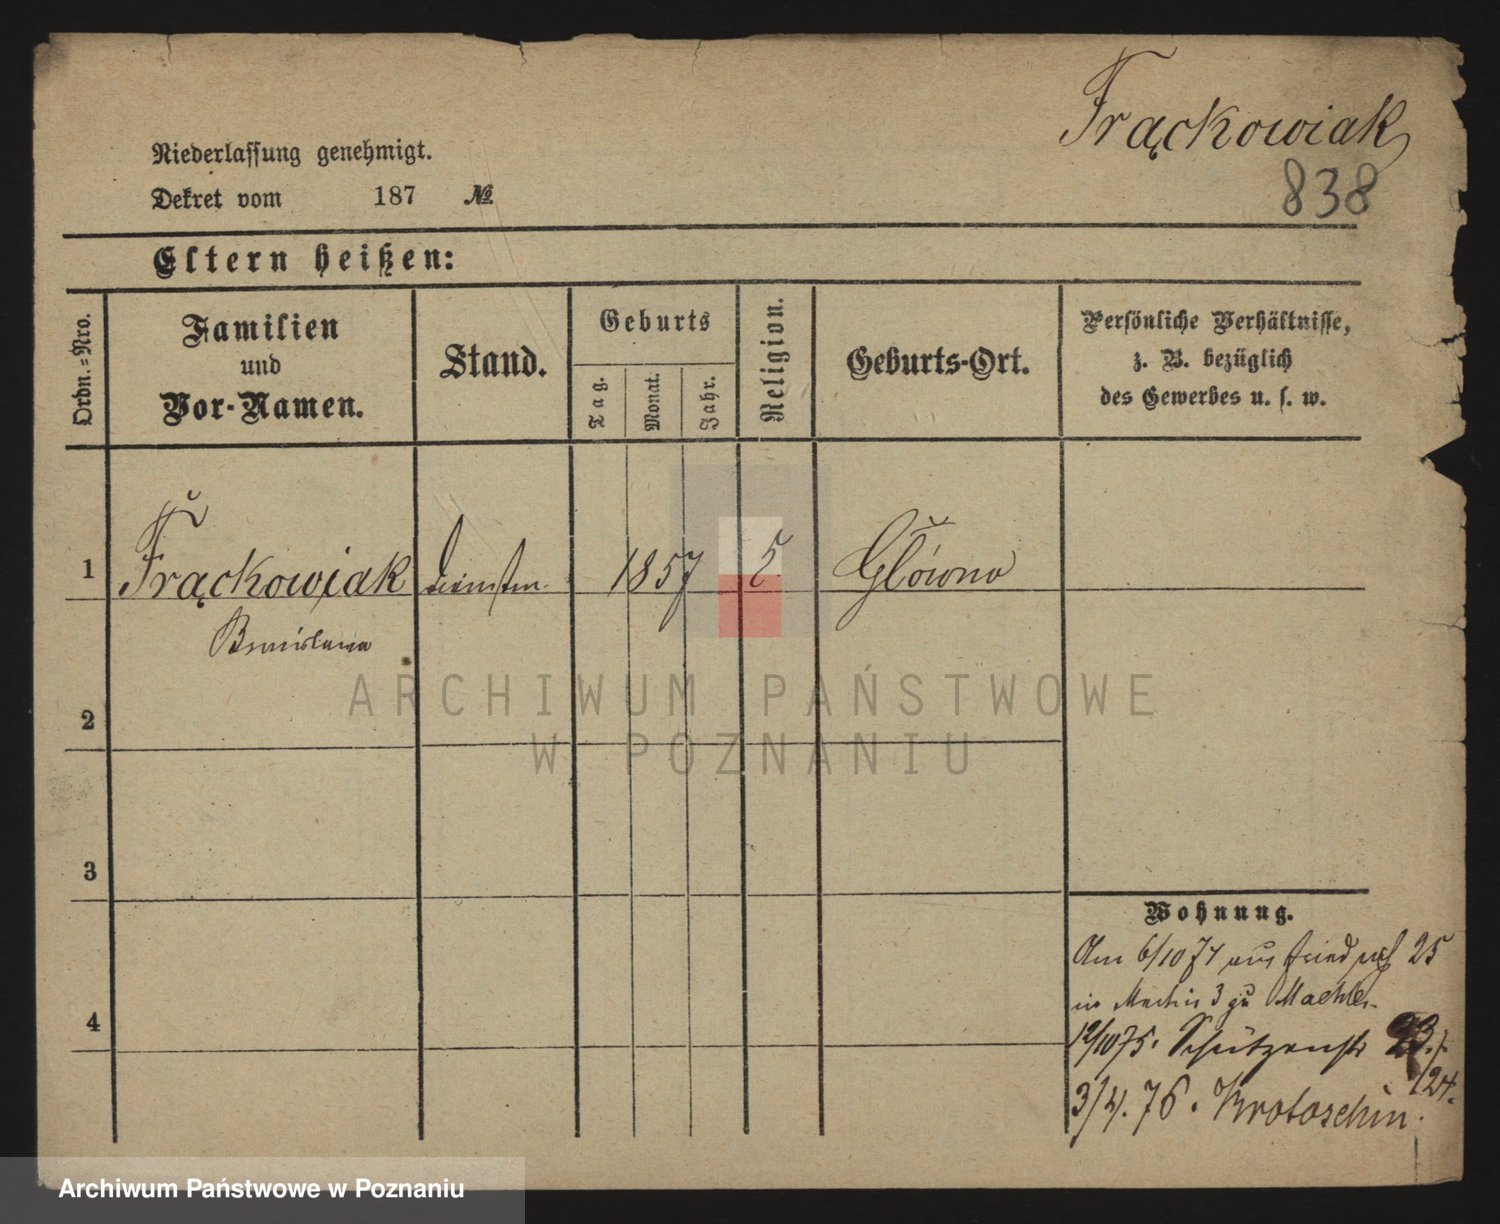 Frąckowiak
838
Niederlassung genehmigt.
Dekret vom 187 №
Eltern heißen:
Ordn.=Nro.
Familien
und
Vor-Namen.
Stand.
Geburts
Tag.
Monat.
Jahr.
Religion.
Geburts-Ort.
Persönliche Verhältnisse,
z. B. bezüglich
des Gewerbes u. s. w.
1 Frąckowiak 1857 Główno
Bronisława
2
ARCHIWUM PAŃSTWOWE
W POZNANIU
3
Wohnung.
Am 6/10 74 aus 25
Martin 3 zu
4
12/10 75. Schützenstr 23.
3/4. 76. Krotoschin.
Archiwum Państwowe w Poznaniu